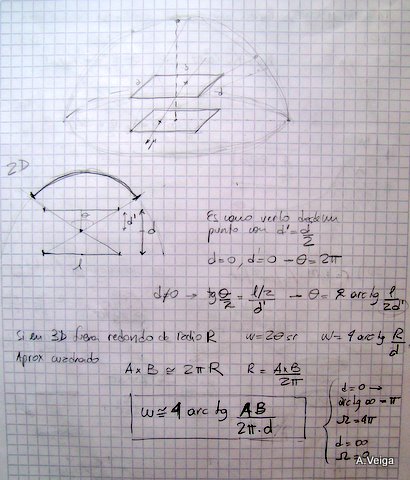 2D
θ
d'
d
l
Es como verlo desde un
punto con d' = d/2
d=0, d'=0 → θ = 2π
d≠0 → tg θ/2 = (l/2)/d' → θ = 2 arctg l/2d'
Si en 3D fuera redondo de radio R w=2θ sr w= 4 arctg R/d
Aprox cuadrado
A×B ≅ 2πR R = A×B/2π
w ≅ 4 arc tg AB/2π·d
d=0 →
arctg ∞ = π
Ω=4π
d=∞
Ω=0
A.Veiga